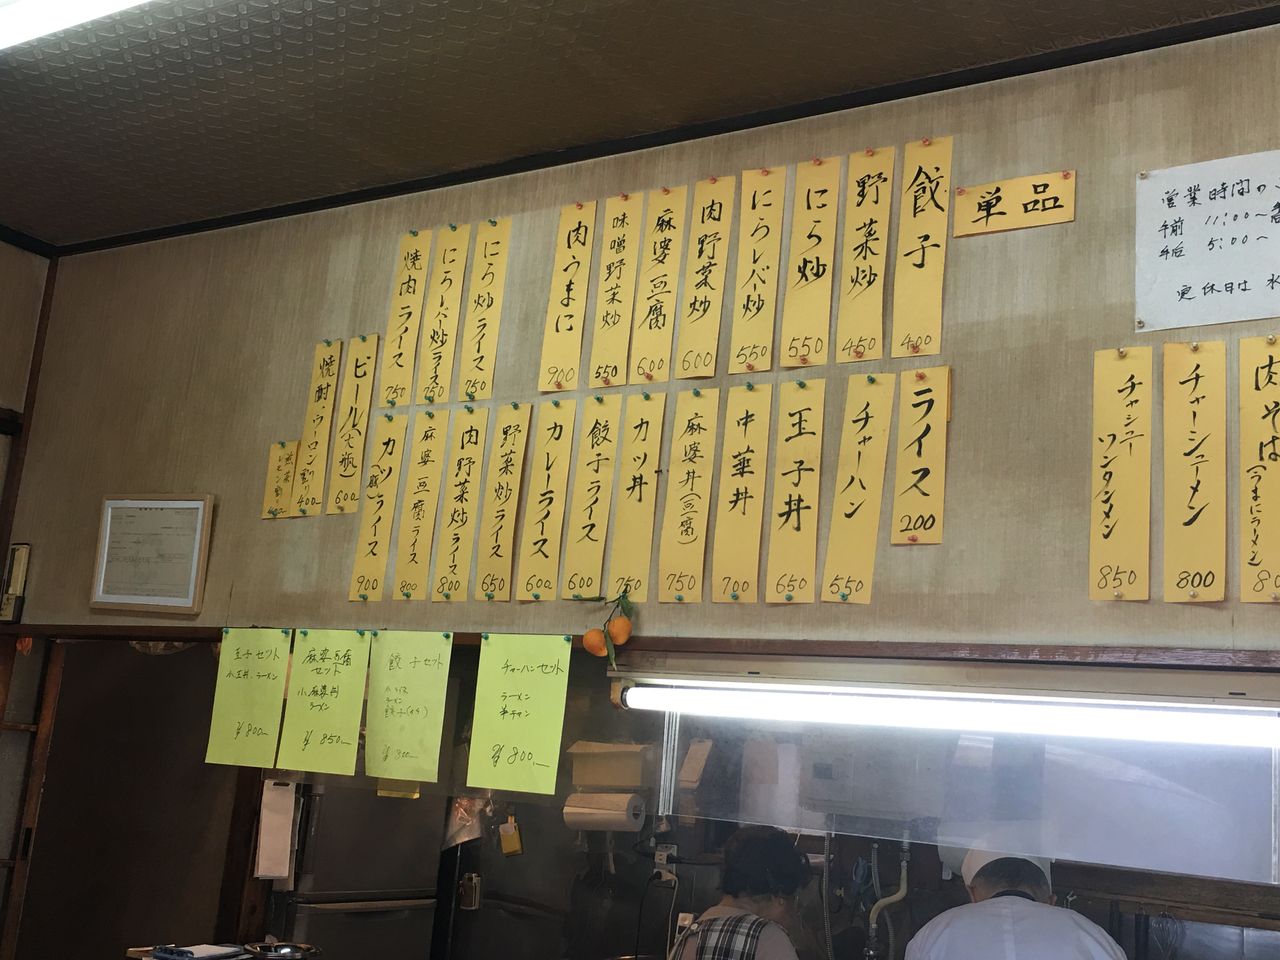 営業時間の
午前 11:00～
午后 5:00～
定休日は 水
単品
餃子 400
野菜炒 450
にら炒 550
にらレバー炒 550
肉野菜炒 600
麻婆豆腐 600
味噌野菜炒 550
肉うまに 900
にら炒ライス 750
にらレバー炒ライス 750
焼肉ライス 750
肉そば(うまにラーメン)
チャーシューメン 800
チャシューワンタンメン 850
ライス 200
チャーハン 550
玉子丼 650
中華丼 700
麻婆丼(豆腐) 750
カツ丼 750
餃子ライス 600
カレーライス 600
野菜炒ライス 650
肉野菜炒ライス 800
麻婆豆腐ライス 800
カツライス 900
ビール(大瓶) 600
焼酎・ウーロン割り 400
レモン割り
玉子セット
小玉丼、ラーメン
¥800—
麻婆豆腐
セット
小麻婆丼
ラーメン
¥850—
餃子セット
小ライス
ラーメン
¥800—
チャーハンセット
ラーメン
半チャン
¥800,—